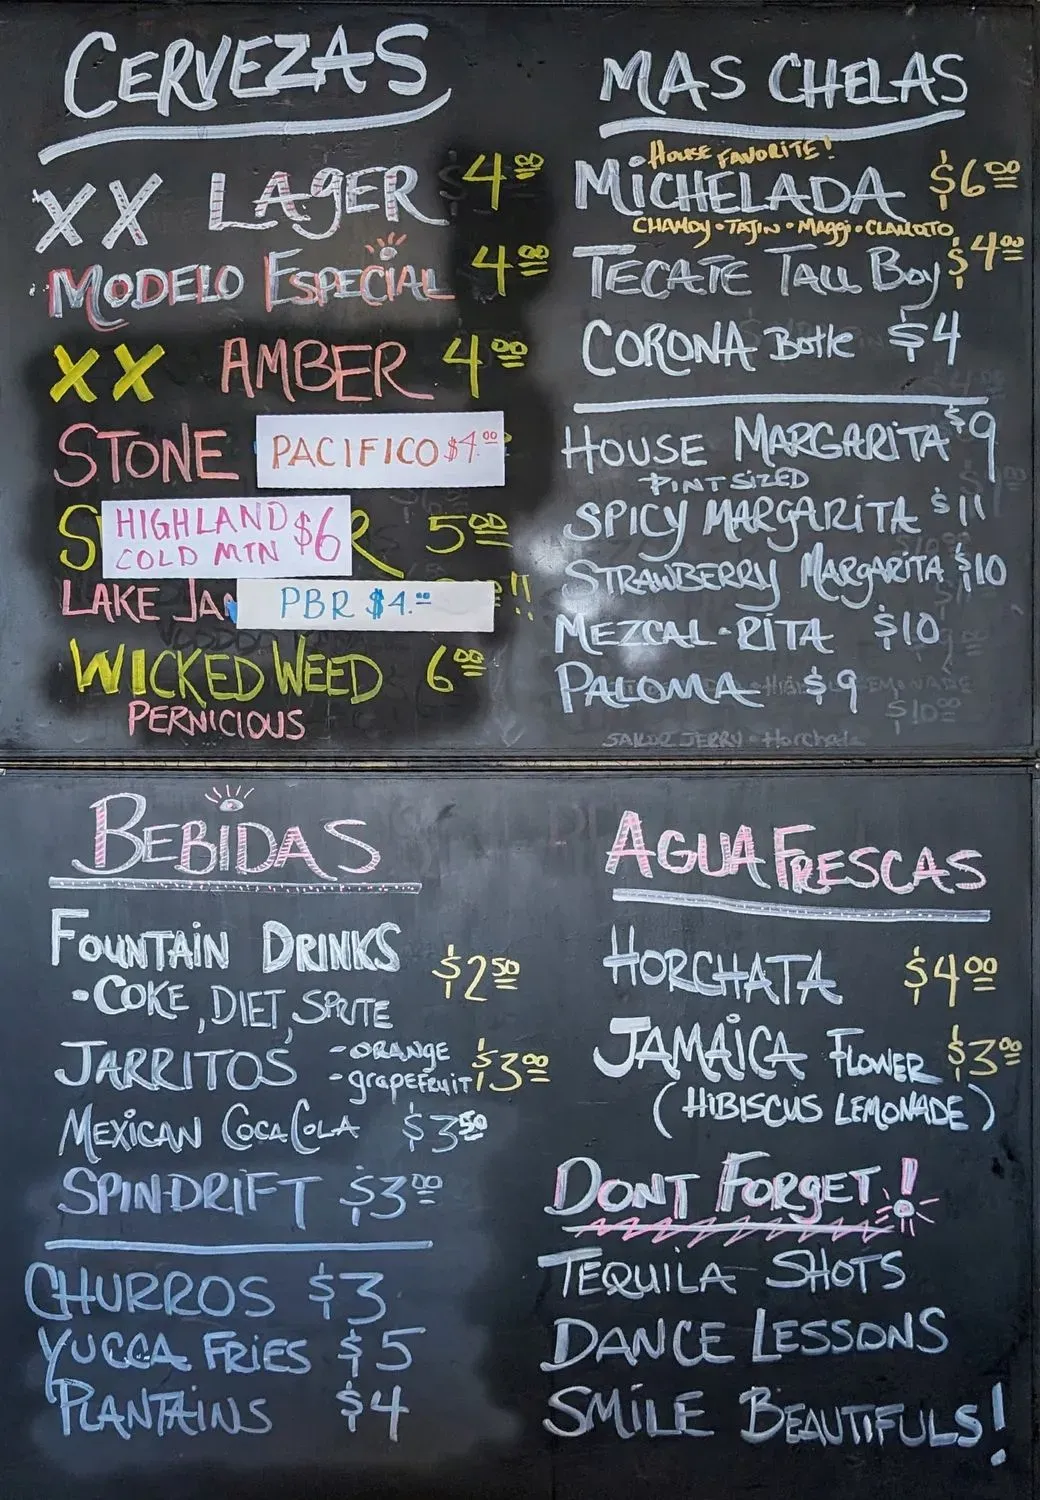 CERVEZAS
XX LAGER $4.00
MODELO ESPECIAL 4.00
XX AMBER 4.00
STONE PACIFICO $4.00
HIGHLAND $6
COLD MTN
5.00
LAKE PBR $4.00 !!
WICKED WEED 6.00
PERNICIOUS
MAS CHELAS
HOUSE FAVORITE!
MICHELADA $6.00
CHAMOY • TAJIN • MAGGI • CLAMATO
TECATE TALL BOY $4.00
CORONA Bottle $4
HOUSE MARGARITA $9
PINT SIZED
SPICY MARGARITA $11
STRAWBERRY MARGARITA $10
MEZCAL-RITA $10
PALOMA $9
SAILOR JERRY • Horchata
BEBIDAS
FOUNTAIN DRINKS $2.50
- COKE, DIET, SPRITE
JARRITOS - ORANGE $3.00
- grapefruit
MEXICAN COCA COLA $3.50
SPINDRIFT $3.00
CHURROS $3
YUCCA FRIES $5
PLANTAINS $4
AGUA FRESCAS
HORCHATA $4.00
JAMAICA FLOWER $3.00
(HIBISCUS LEMONADE)
DONT FORGET!
TEQUILA SHOTS
DANCE LESSONS
SMILE BEAUTIFULS!